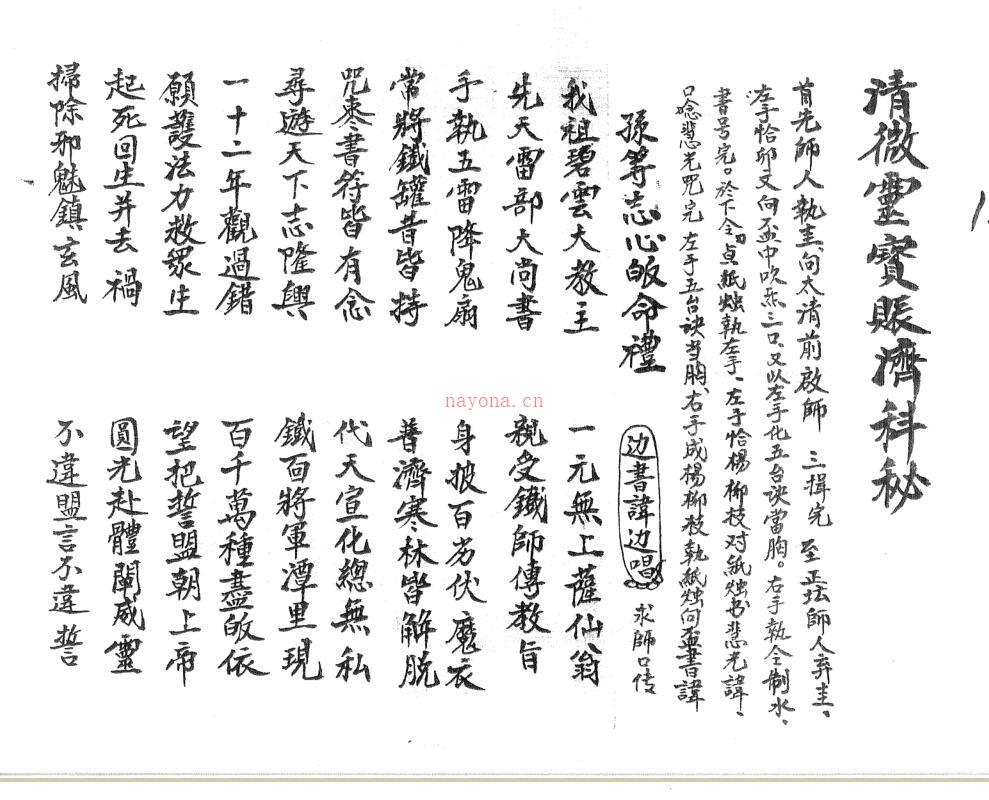 清微靈寳賬濟科秘
首先師人執圭向太清前啟師 三揖完 至正坛師人弃圭、
左手恰卯文向盃中吹炁三口、又以左手化五台诀當胸。右手執令制水、
書号完。於下令貞紙烛執左手、左手恰楊柳枝对紙烛书悲光諱、
口唸悲光咒完 左手五台诀当胸、右手成楊柳枝執紙烛向盃書諱
孫等志心皈命禮
边書諱边唱
求師口传
我祖碧雲大教主 一元無上薩仙翁
先天雷部大尚書 親受鐵師傳教旨
手執五雷降鬼扇 身披百衲伏魔衣
常將鐵罐昔皆持 普濟寒林皆解脱
咒棗書符皆有念 代天宣化總無私
尋遊天下志隆興 鐵面將軍潭里現
一十二年觀過錯 百千萬種盡皈依
願護法力救眾生 望把誓盟朝上帝
起死回生并去禍 圓光赴體闡威靈
掃除邪魅鎮玄風 不違盟言不違誓
nayona.cn